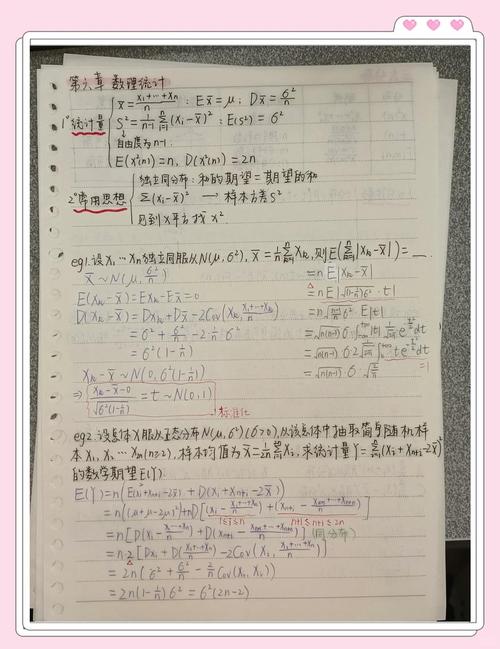 第六章 数理统计
1° 统计量 { x̄ = (x₁+…+xₙ)/n : Ex̄ = μ, Dx̄ = б²/n
S² = 1/(n-1) Σᵢ₌₁ⁿ (xᵢ-x̄)² : E(S²) = б²
自由度为n-1.
E(x²(n)) = n, D(x²(n)) = 2n
2° 常用思想 { 独立同分布: 和的期望=期望的和
Σ(xᵢ-x̄)² → 样本方差S²
见到x平方找x².
eg1. 设X₁…Xn独立同服从N(μ,б²), x̄ = 1/n Σₖ₌₁ⁿ Xₖ, 则E(Σₖ₌₁ⁿ |Xₖ-x̄|) = __.
x̄ ~ N(μ, б²/n)
E(Xₖ-x̄) = EXₖ-Ex̄ = 0
D(Xₖ-x̄) = DXₖ+Dx̄-2Cov(Xₖ, (x₁+…+xₙ)/n)
= б² + б²/n - 2·1/n·б²
= б²(1-1/n)
Xₖ-x̄ ~ N(0, б²(1-1/n))
⇒ (Xₖ-x̄-0)/√(б²(1-1/n)) = t ~ N(0,1)
标准化
= nE|Xₖ-x̄|
= nE|√((1-1/n)б²)·t|
= n√((n-1)/n) б·E|t|
= √(n(n-1)) б·∫₋∞⁺∞ |t| 1/√(2π) e^(-t²/2) dt
= √(n(n-1)) б·2 1/√(2π) ∫₀⁺∞ t e^(-t²/2) dt
=1
= √(n(n-1)) б·√(2/π)
eg2. 设总体X服从正态分布N(μ,б²)(б>0), 从该总体中抽取简单随机样
本X₁, X₂, …X₂ₙ(n≥2), 样本均值为x̄ = 1/2n Σᵢ₌₁²ⁿ Xᵢ, 求统计量Y = Σᵢ₌₁ⁿ (Xᵢ+Xₙ₊ᵢ-2x̄)²
的数学期望E(Y).
E(Y) = n(E²(Xᵢ+Xₙ₊ᵢ-2x̄) + D(Xᵢ+Xₙ₊ᵢ-2x̄))
= n((μ+μ-2μ)²)+nD[(Xᵢ-(x₁+…+xₙ)/n) + (Xₙ₊ᵢ-(xₙ₊₁+…+xₙ₊ₙ)/n)]
1≤i≤n n+1≤n+i≤2n
= n[D(Xᵢ-(x₁+…+xₙ)/n) + D(Xₙ₊ᵢ-(xₙ₊₁+…+xₙ₊ₙ)/n)] (同分布)
= n·2[DXᵢ+D((x₁+…+xₙ)/n)-2Cov(Xᵢ, (x₁+…+xₙ)/n)]
= 2n(б²+б²/n-2/n Cov(Xᵢ, Xᵢ))
= 2n(1-1/n)б² = б²(2n-2)